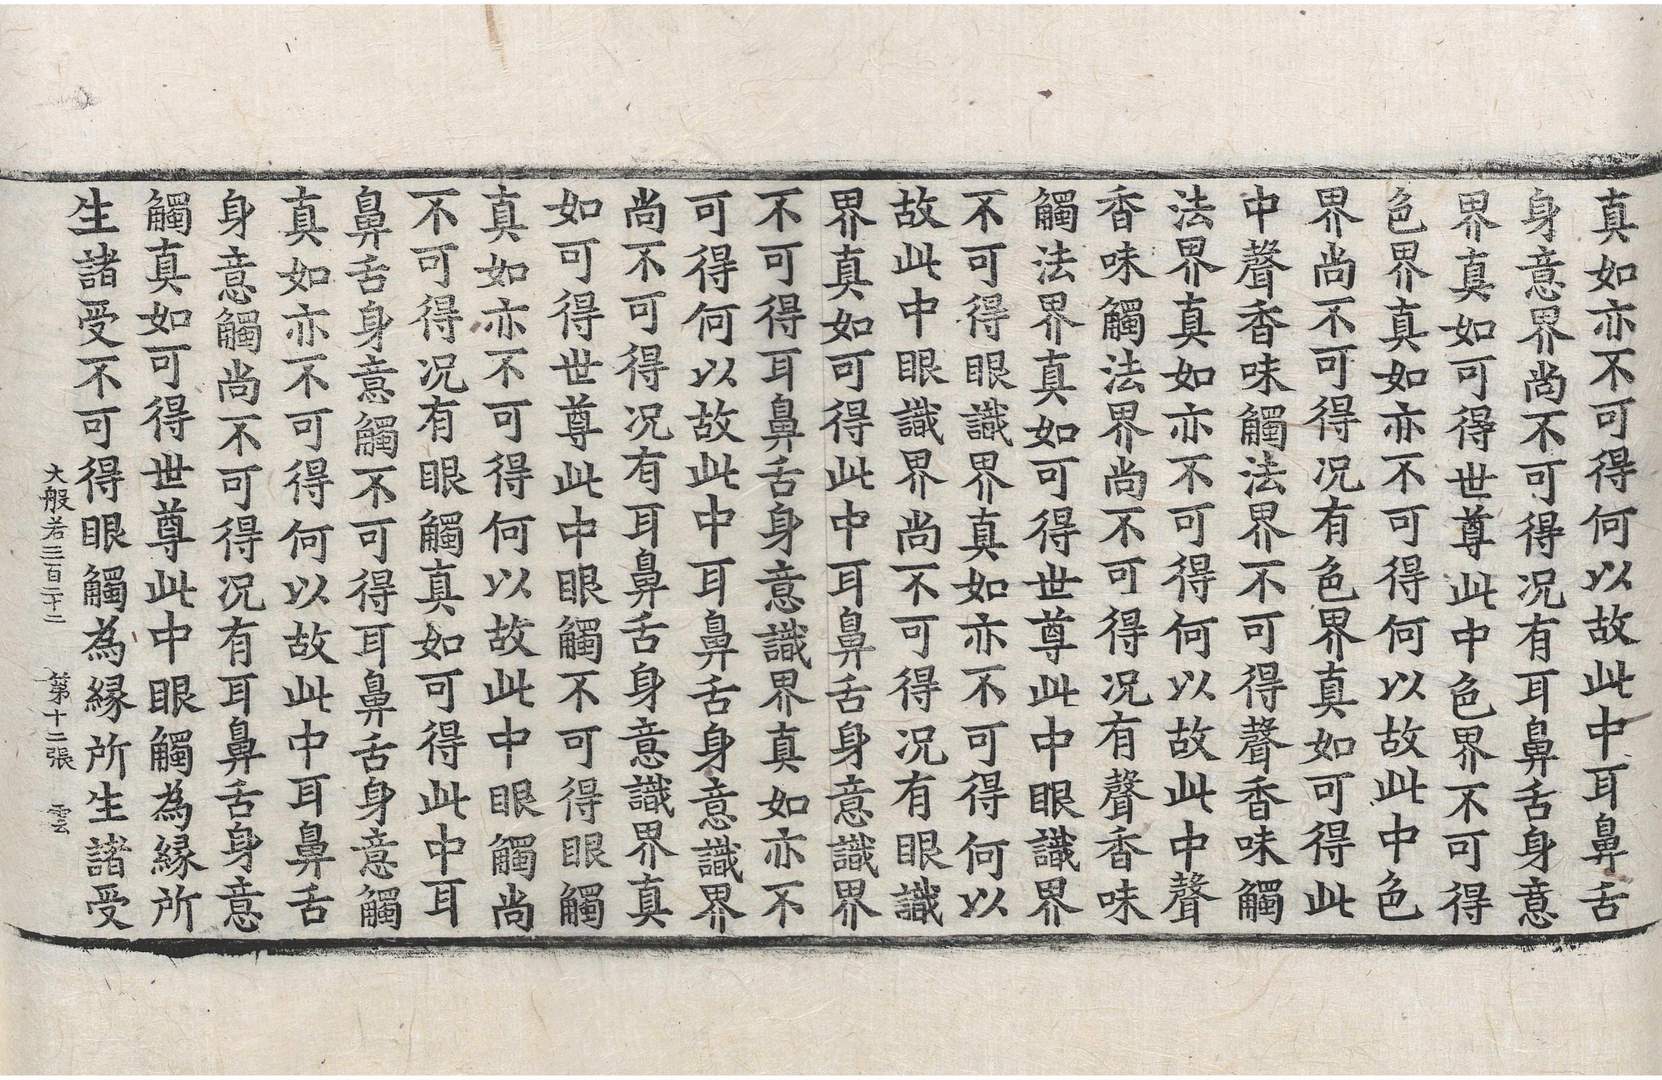 真如亦不可得何以故此中耳鼻舌
身意界尚不可得况有耳鼻舌身意
界真如可得世尊此中色界不可得
色界真如亦不可得何以故此中色
界尚不可得况有色界真如可得此
中聲香味觸法界不可得聲香味觸
法界真如亦不可得何以故此中聲
香味觸法界尚不可得况有聲香味
觸法界真如可得世尊此中眼識界
不可得眼識界真如亦不可得何以
故此中眼識界尚不可得况有眼識
界真如可得此中耳鼻舌身意識界
不可得耳鼻舌身意識界真如亦不
可得何以故此中耳鼻舌身意識界
尚不可得况有耳鼻舌身意識界真
如可得世尊此中眼觸不可得眼觸
真如亦不可得何以故此中眼觸尚
不可得况有眼觸真如可得此中耳
鼻舌身意觸不可得耳鼻舌身意觸
真如亦不可得何以故此中耳鼻舌
身意觸尚不可得况有耳鼻舌身意
觸真如可得世尊此中眼觸為緣所
生諸受不可得眼觸為緣所生諸受
大般若三百二十二 第十二張 雲